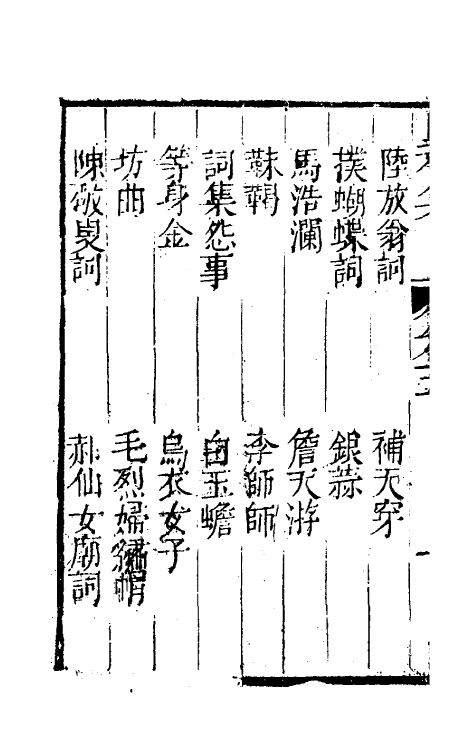 陸放翁詞
補天穿
撲蝴蝶詞
銀蒜
馬浩瀾
詹天游
靺鞨
李師師
詞集怨事
白玉蟾
等身金
烏衣女子
坊曲
毛烈婦繡帽
陳敬叟詞
郝仙女廟詞